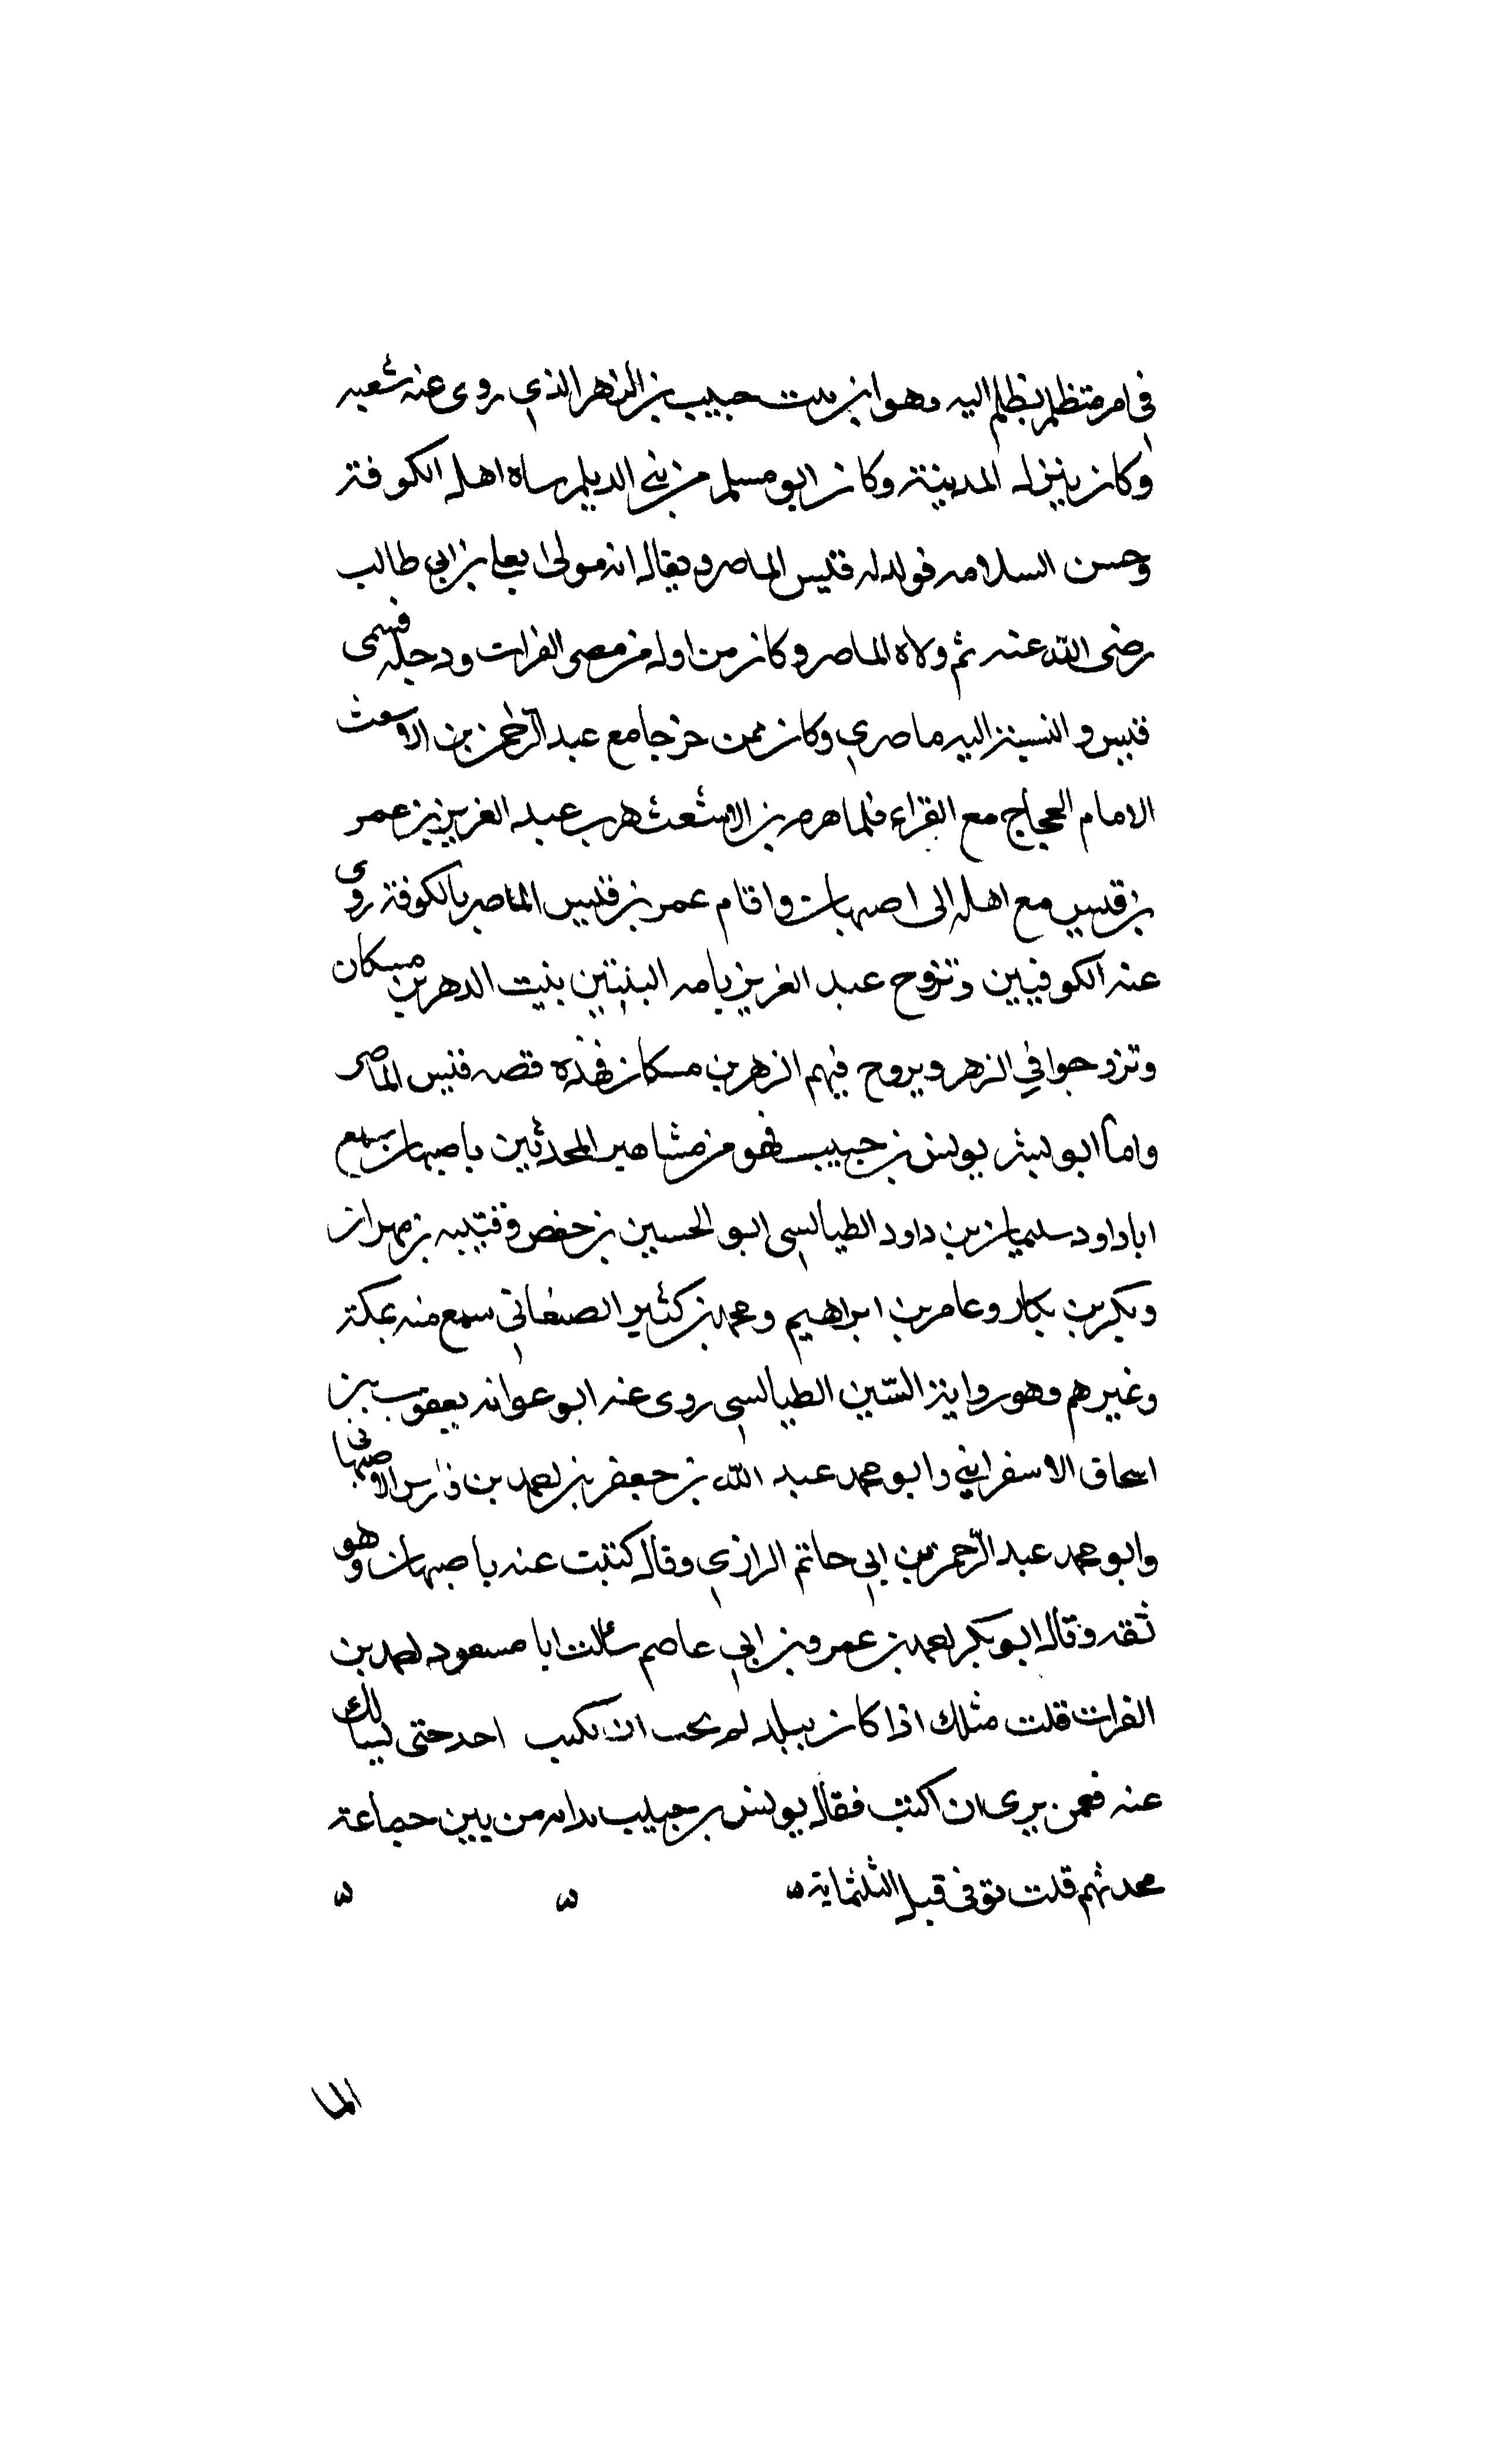 في امر متظلم بظلم اليه وهو ابن بنت حبيب بن الزهر الذي روى عنه شعبه
وكان ينزل المدينة وكان ابو مسلم من بني الديلم رساه اهل الكوفة
وحسن السلامه فولد له قيس الماصر ويقال انه مولى لعلي بن ابي طالب
رضى الله عنه ثم ولاه الماصر وكان من اول من مصى الفرات ودجله فسمى
قيس والنسبة اليه ماصري وكان ممن خرجا مع عبد الرحمن بن الاشعث
الامام الحجاج مع القراء فلما هرم بن الاشعث هرب عبد العزيز بن عمر
بن قيس مع اهله الى اصبهان واقام عمر بن قيس الماصر بالكوفة روى
عنه الكوفيين وتزوج عبد العزيز بامه البنتين بنيت الدهر بن مسكان
وتزوجوا في الزهر ويروح فيهم الزهر بن مسكان فهذه قصه قيس الماصر
واما ابو بشر يونس بن حبيب فهو من مشاهير المحدثين باصبهان سمع
ابا داود سليمان بن داود الطيالسي ابو الحسين بن حفص وقتيبه بن مهران
وبكر بن بكار وعامر بن ابراهيم ومحمد بن كثير الصنعاني سمع منه بمكة
وغيرهم وهو رواية السنين الطيالسي روى عنه ابو عوانه يعقوب بن
اسحاق الاسفرايني وابو محمد عبد الله بن جعفر بن احمد بن فارس الاصبهاني
وابو محمد عبد الرحمن بن ابي حاتم الرازي وقال كتبت عنه باصبهان وهو
ثقه وقال ابو بكر احمد بن عمرو بن ابي عاصم سألت ابا مسعود احمد بن
الفرات قلت مثلك اذا كان ببلد لم يحب ان نكتب احد حتى يسالك
عنه فعمن يرى ان اكتب فقال يونس بن حبيب بدا به من بين جماعة
محدثهم قلت توفى قبل الثلثماية
الما